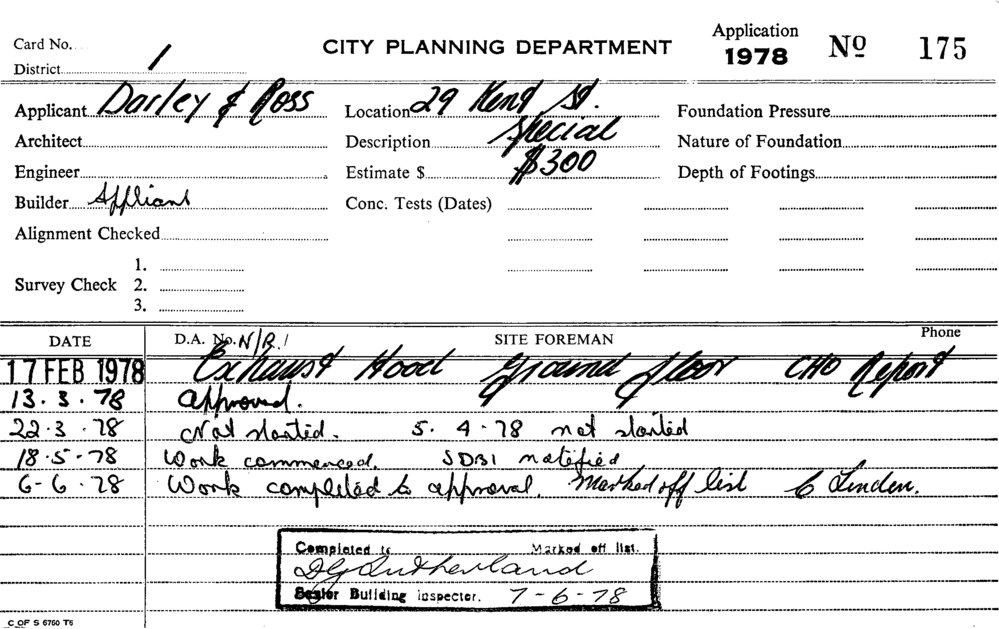 Application
Card No. CITY PLANNING DEPARTMENT 1978 Nº 175
District 1
Applicant Darley & Ross Location 29 Kent St. Foundation Pressure
Architect Description Special Nature of Foundation
Engineer Estimate $ $300 Depth of Footings
Builder Appliant Conc. Tests (Dates)
Alignment Checked
1.
Survey Check 2.
3.
DATE D.A. No. N/R. SITE FOREMAN Phone
17 FEB 1978 Exhaust Hood Ground floor CHO Report
13.3.78 Approved.
22.3.78 Not started. 5.4.78 not started
18.5.78 Work commenced. SDBI notified
6-6.78 Work completed to approval. Marked off list C Linden.
Completed to Marked off list.
DG Sutherland
Senior Building Inspector. 7-6-78
C OF S 6760 T6